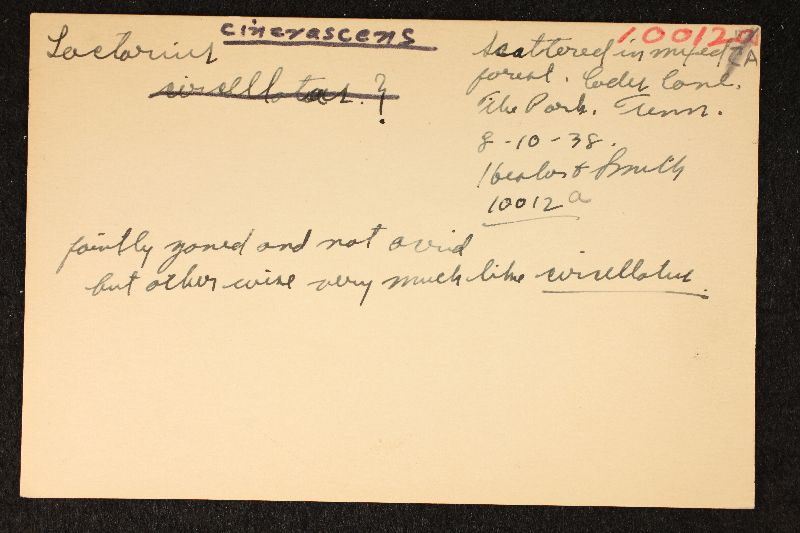 Lactarius cinerascens
circellatus. ?
100127
CA
Scattered in mixed
forest. Cades Cove.
The Park. Tenn.
8-10-38.
Hesler & Smith
10012 a
faintly zoned and not acrid
but otherwise very much like circellatus.